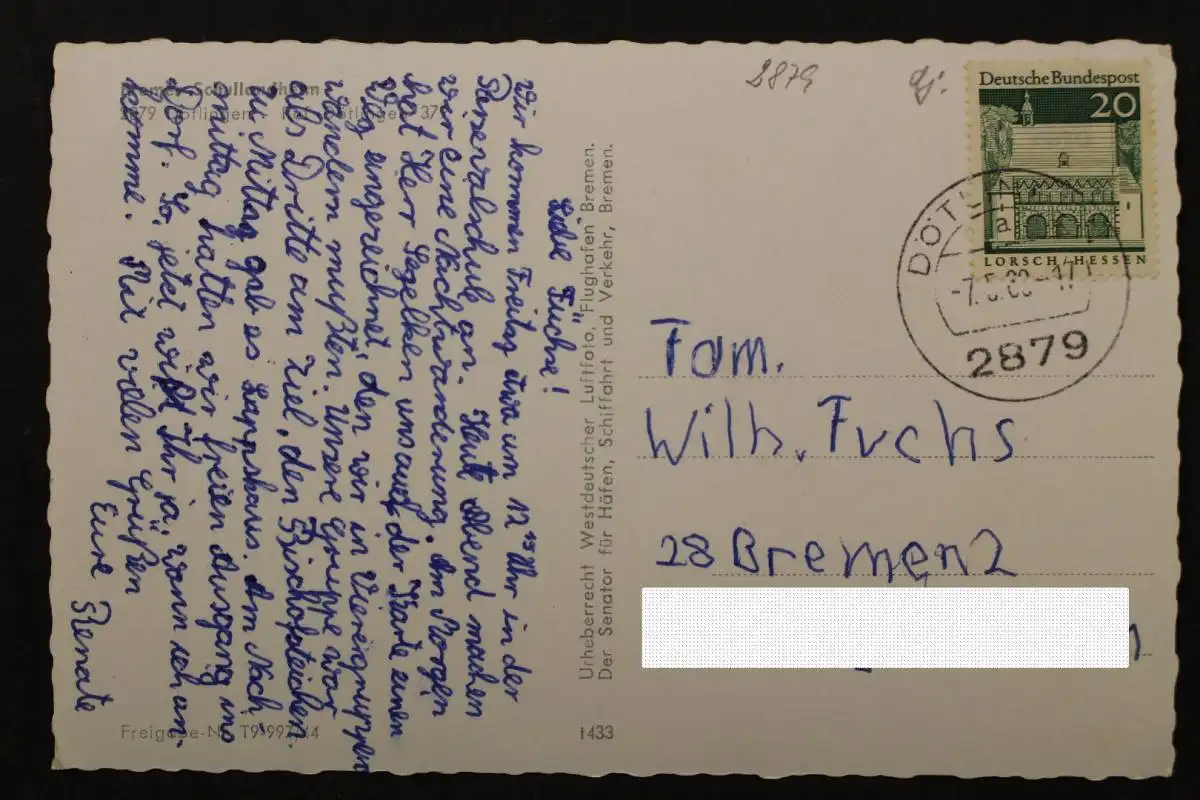 Bremer Schullandheim
2879 Dötlingen - Ruf Dötlingen 37
Liebe Füchse!
Wir kommen Freitag etwa um 12⁴⁵ Uhr in der
schule an. Heute Abend machen
wir eine Nachtwanderung. Am Morgen
hat Herr Segelken uns auf der Karte einen
Weg eingezeichnet, den wir in Vierergruppen
wandern mußten. Unsere Gruppe war
als Dritte am Ziel, den
Zu Mittag gab es Lappshaus. Am Nach-
mittag hatten wir freien Ausgang ins
Dorf. So, jetzt wißt Ihr ja, wann ich an-
komme. Mit vielen Grüßen
Eure
Renate
Freigabe-Nr. T9-997/14
1433
Urheberrecht Westdeutscher Luftfoto, "Flughafen" Bremen.
Der Senator für Häfen, Schiffahrt und Verkehr, Bremen.
2879
Deutsche Bundespost
20
LORSCH/HESSEN
DÖTL
-7.5.68-17
2879
Fam.
Wilh. Fuchs
28 Bremen 2